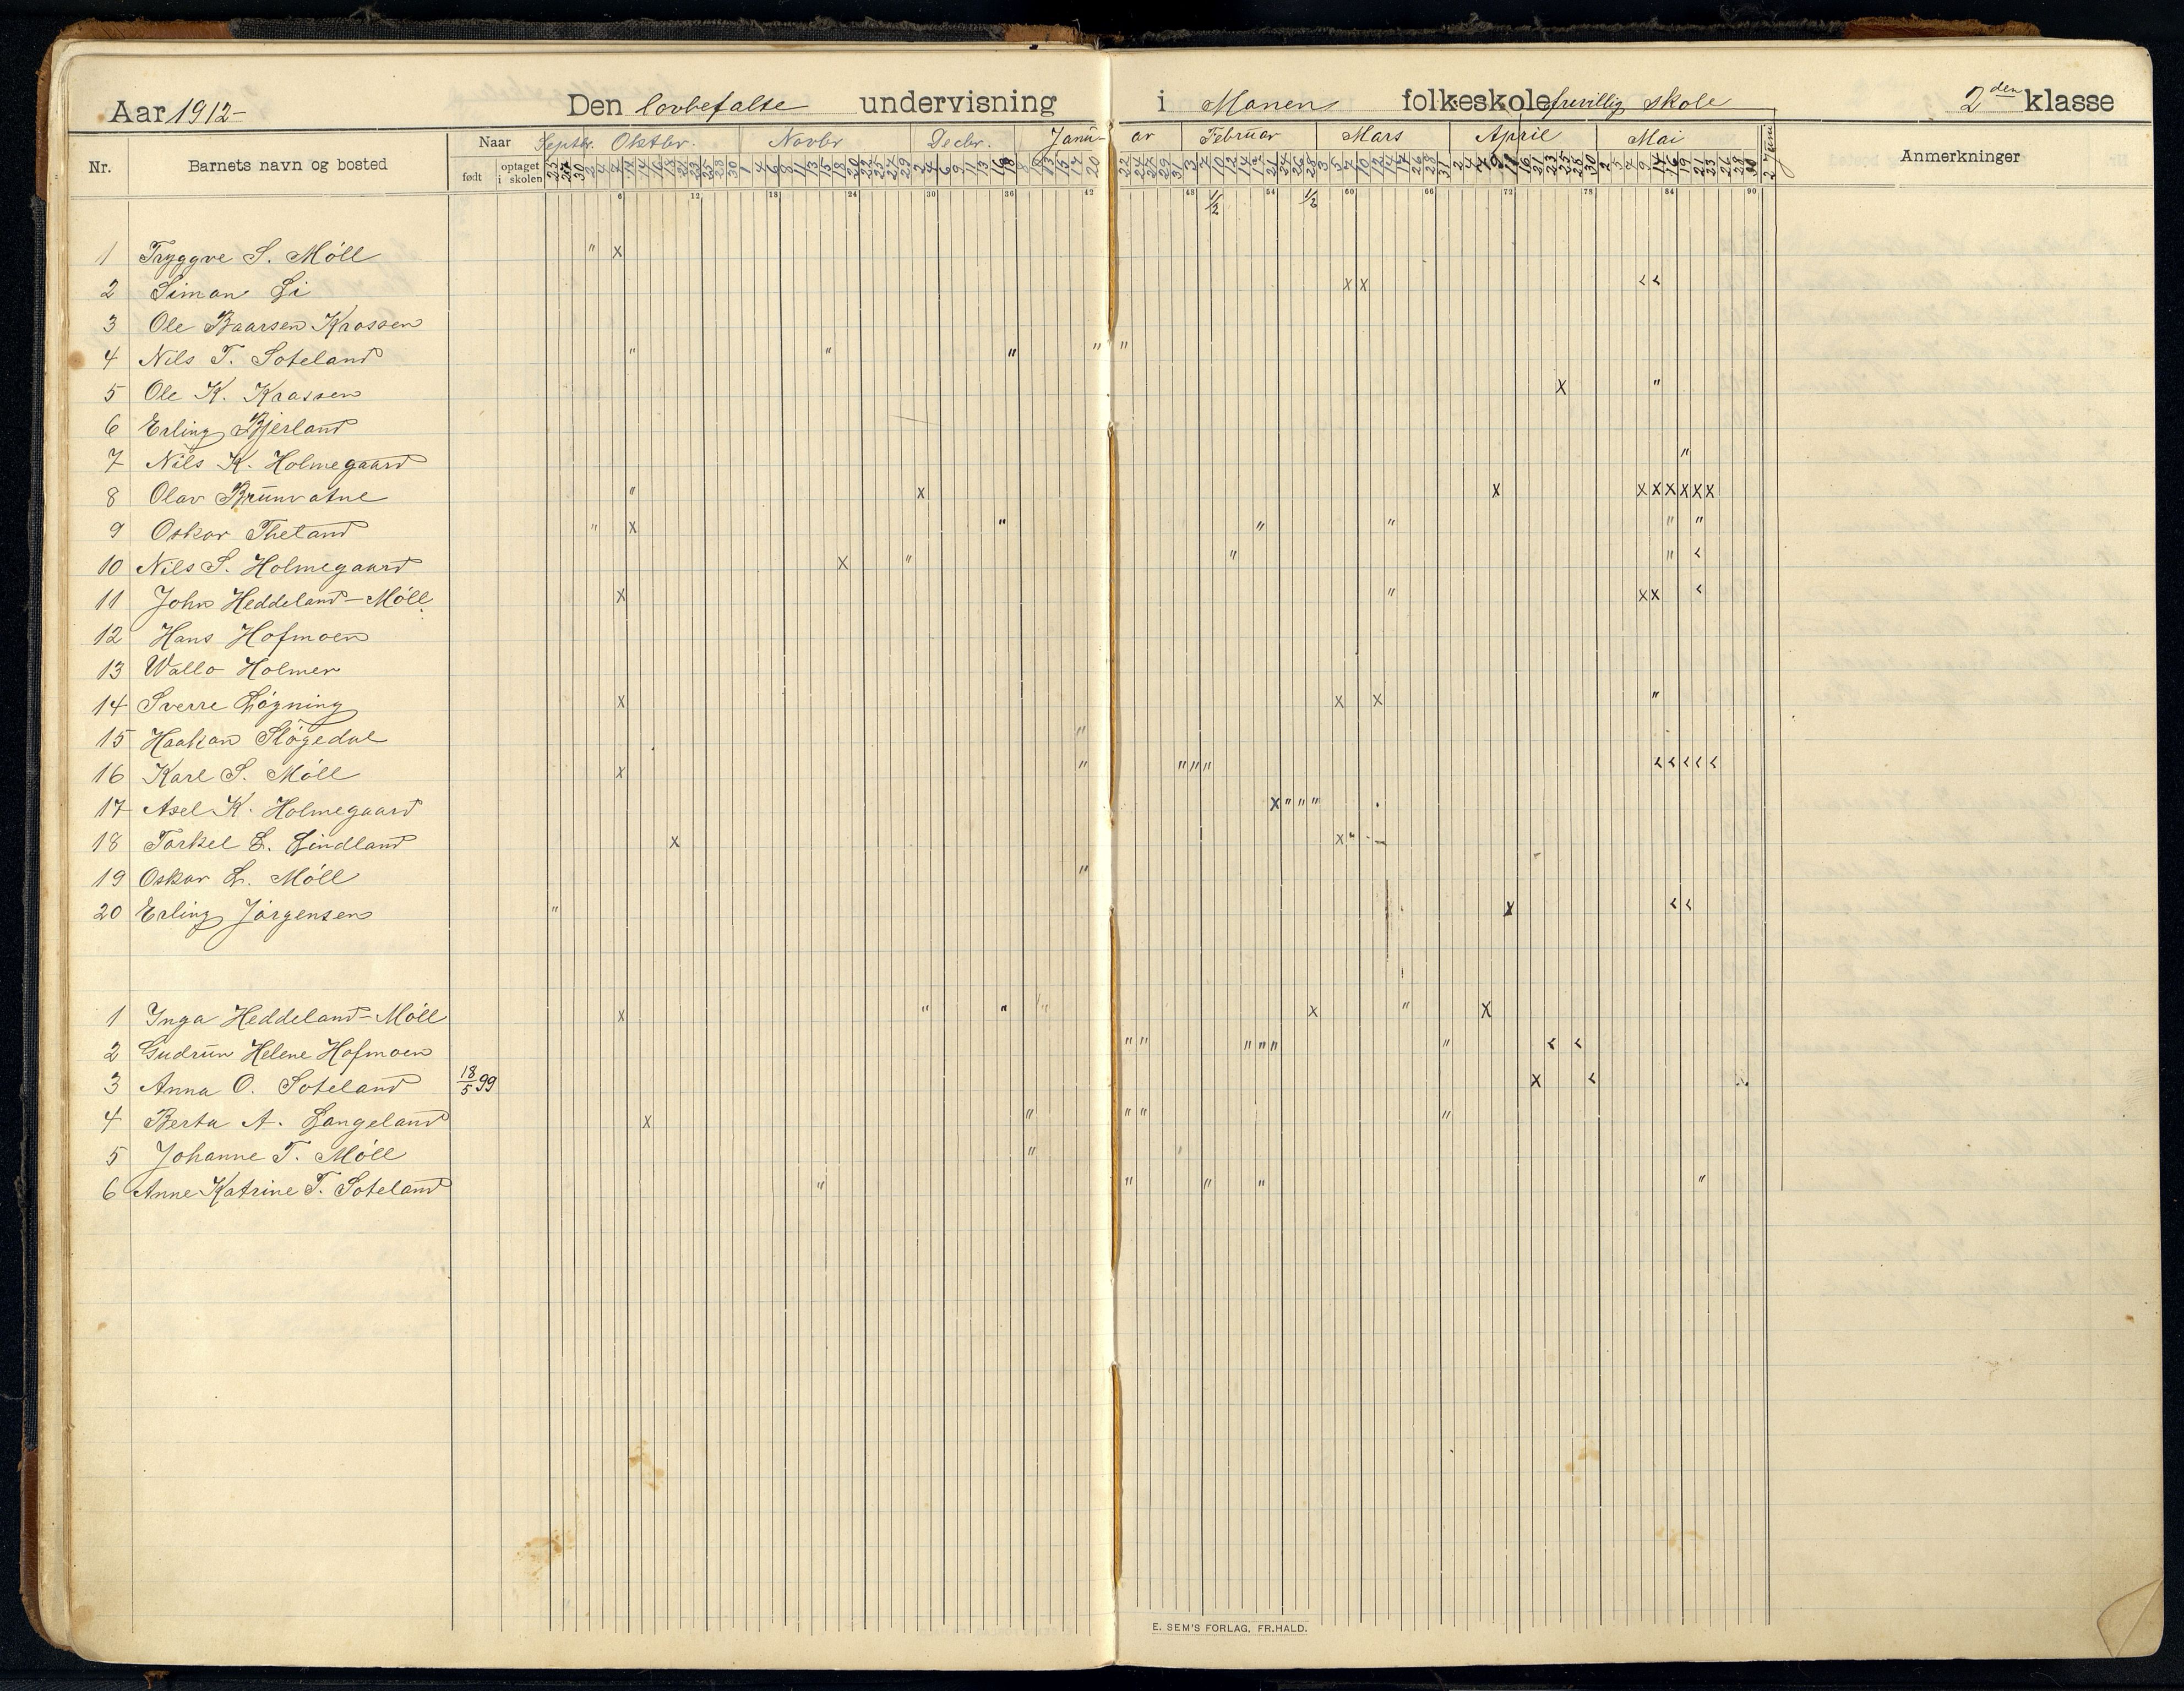 Aar 1912- Den lovbefalte undervisning i Manen folkeskole frivillig skole 2den klasse
Nr. Barnets navn og bosted Naar Septbr. Oktbr. Novbr Decbr. Januar Februar Mars April Mai Juni Anmerkninger
født optaget i skolen
6 12 18 24 30 36 42 48 54 60 66 72 78 84 90
1/2 1/2
1 Tryggve S. Möll
2 Simon Li
3 Ole Baarsen Krossen
4 Nils T. Soteland
5 Ole K. Krossen
6 Erling Bjerland
7 Nils K. Holmegaard
8 Olav Brunvatne
9 Oskar Theland
10 Nils S. Holmegaard
11 John Heddeland-Möll
12 Hans Hofmoen
13 Wallo Holmer
14 Sverre Lögning
15 Haakon Slögedal
16 Karl S. Möll
17 Axel K. Holmegaard
18 Torkel L. Lindland
19 Oskar L. Möll
20 Erling Jörgensen
1 Inga Heddeland-Möll
2 Gudrun Helene Hofmoen
3 Anna O. Soteland 18/5 99
4 Berta A. Langeland
5 Johanne T. Möll
6 Anne Katrine T. Soteland
E. SEM'S FORLAG, FR.HALD.